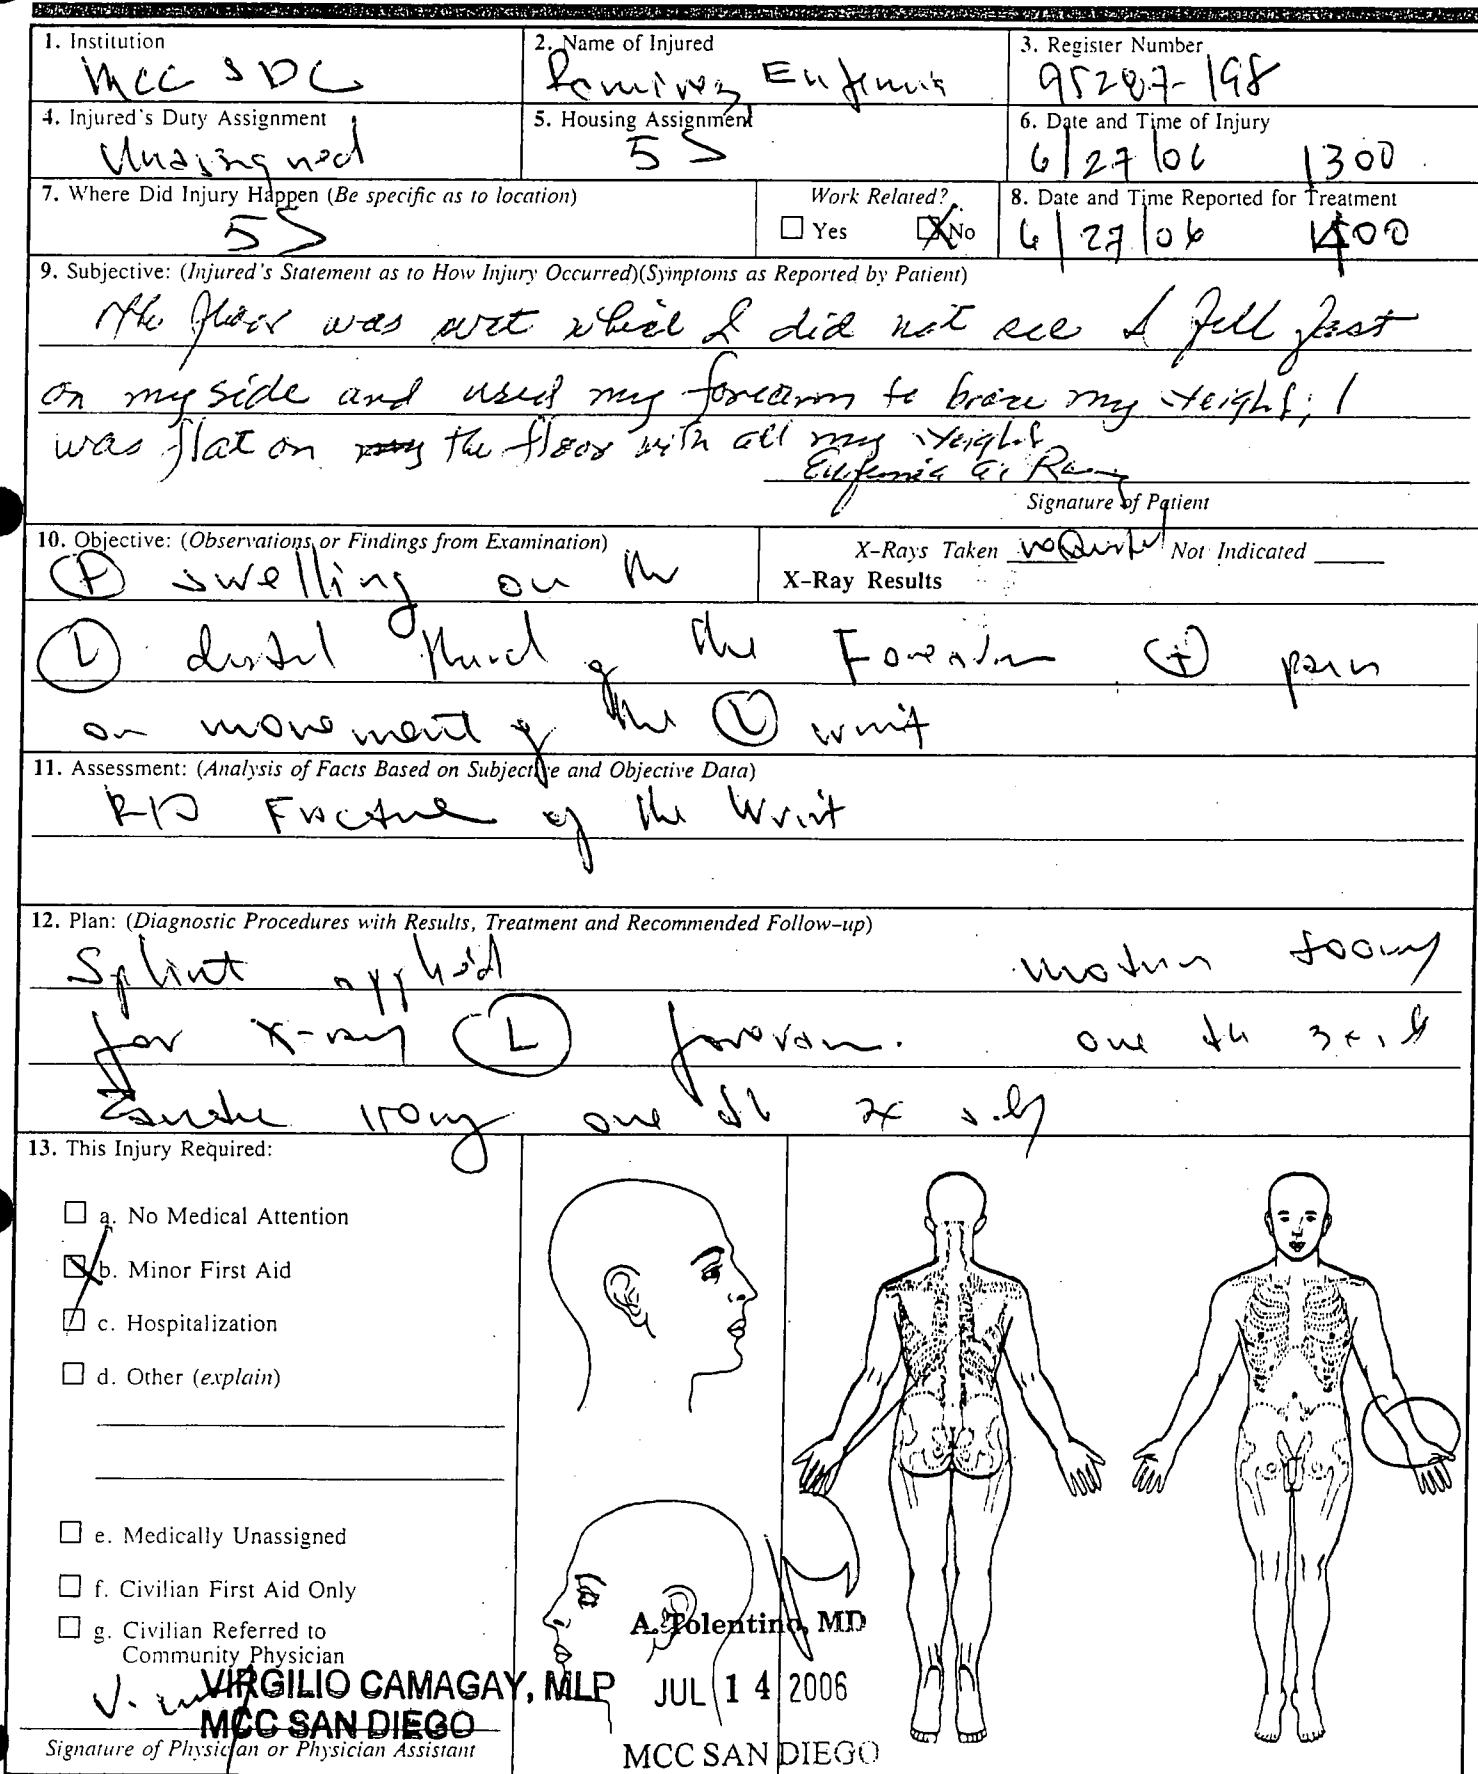 1. Institution
MCC SDC
2. Name of Injured
Ramirez Eufemia
3. Register Number
95287-198
4. Injured's Duty Assignment
Unassigned
5. Housing Assignment
5S
6. Date and Time of Injury
6/27/06 1300
7. Where Did Injury Happen (Be specific as to location)
5S
Work Related?
Yes No
8. Date and Time Reported for Treatment
6/27/06 1400
9. Subjective: (Injured's Statement as to How Injury Occurred)(Symptoms as Reported by Patient)
The floor was wet which I did not see I fell fast
on my side and used my forearm to brace my weight; I
was flat on the floor with all my weight
Eufemia G. Ram
Signature of Patient
10. Objective: (Observations or Findings from Examination)
X-Rays Taken Not Indicated
X-Ray Results
(+) swelling on the
(L) distal third of the Forearm (+) pain
on movement of the (L) wrist
11. Assessment: (Analysis of Facts Based on Subjective and Objective Data)
R/O Fracture of the Wrist
12. Plan: (Diagnostic Procedures with Results, Treatment and Recommended Follow-up)
Splint applied Motrin 800mg
for X-ray (L) forearm. one tb 3x
one tb 2x
13. This Injury Required:
a. No Medical Attention
b. Minor First Aid
c. Hospitalization
d. Other (explain)
e. Medically Unassigned
f. Civilian First Aid Only
g. Civilian Referred to
Community Physician
VIRGILIO CAMAGAY, MLP
MCC SAN DIEGO
Signature of Physician or Physician Assistant
A. Tolentino, MD
JUL 14 2006
MCC SAN DIEGO